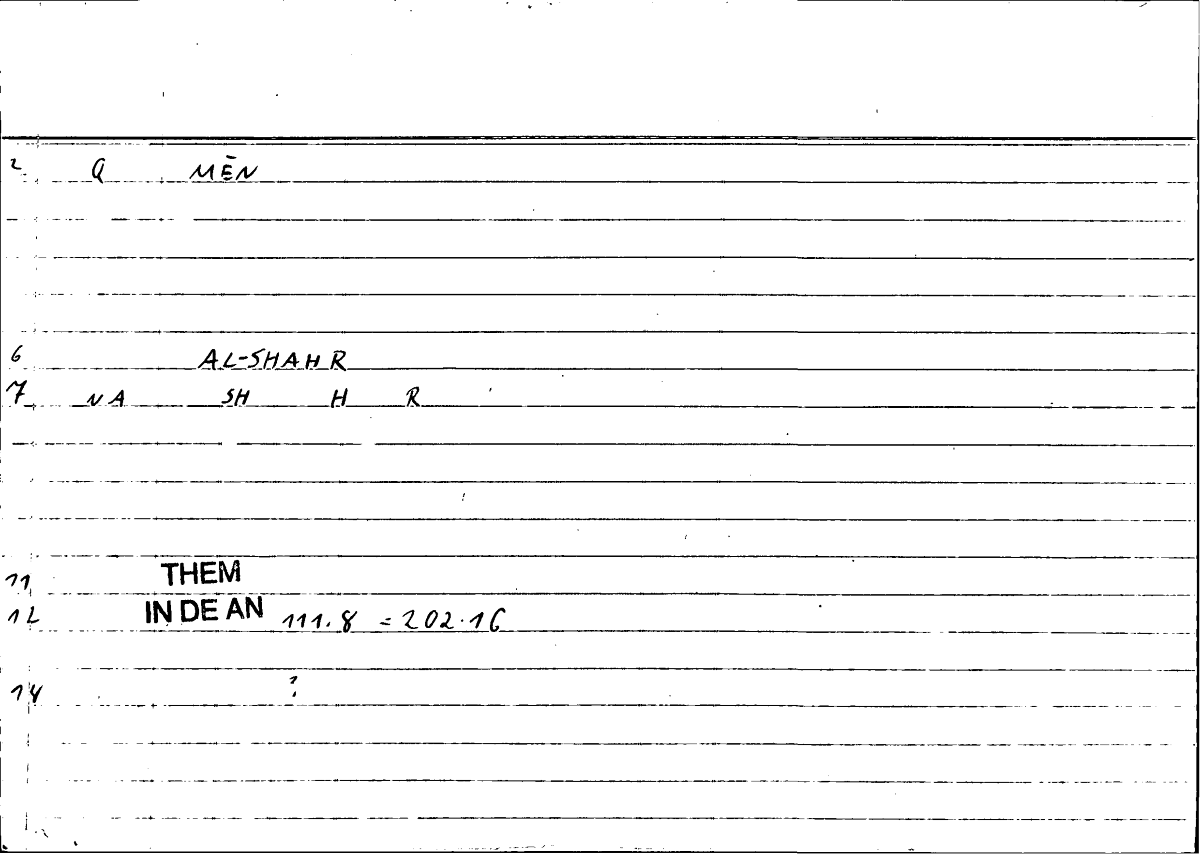 2 Q MĒN
6 AL-SHAHR
7 NA SH H R
11 THEM
12 IN DE AN 111.8 = 202.16
14 ?